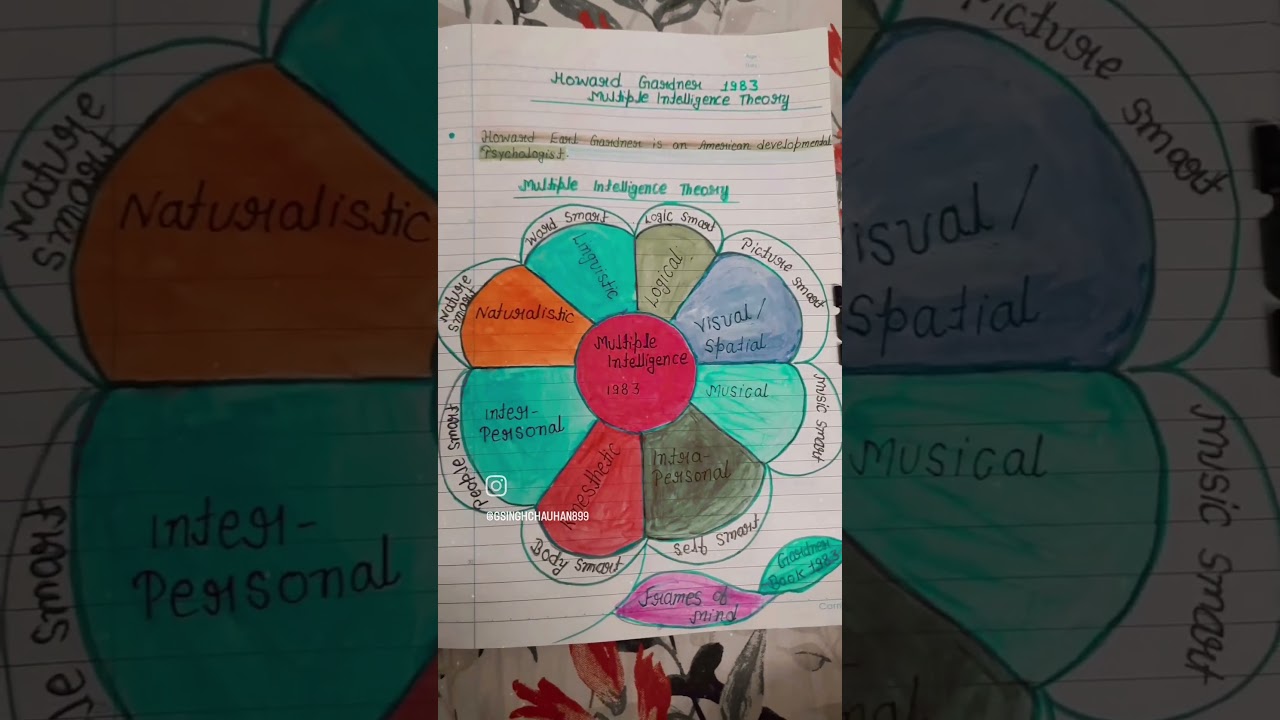 Howard Gardner 1983
Multiple Intelligence Theory
Howard Earl Gardner is an American developmental
Psychologist.
Multiple Intelligence Theory
Word Smart
Linguistic
Logic Smart
Logical
Picture Smart
Visual /
Spatial
Music Smart
Musical
Intra-
Personal
Self Smart
Kinesthetic
Body Smart
Inter-
Personal
People Smart
Nature
Smart
Naturalistic
Multiple
Intelligence
1983
@GSINGHCHAUHAN899
Gardner
Book 1983
Frames of
Mind
Nature
Smart
Naturalistic
Inter-
Personal
Smart
Picture
Smart
isual /
Spatial
Musical
Music Smart